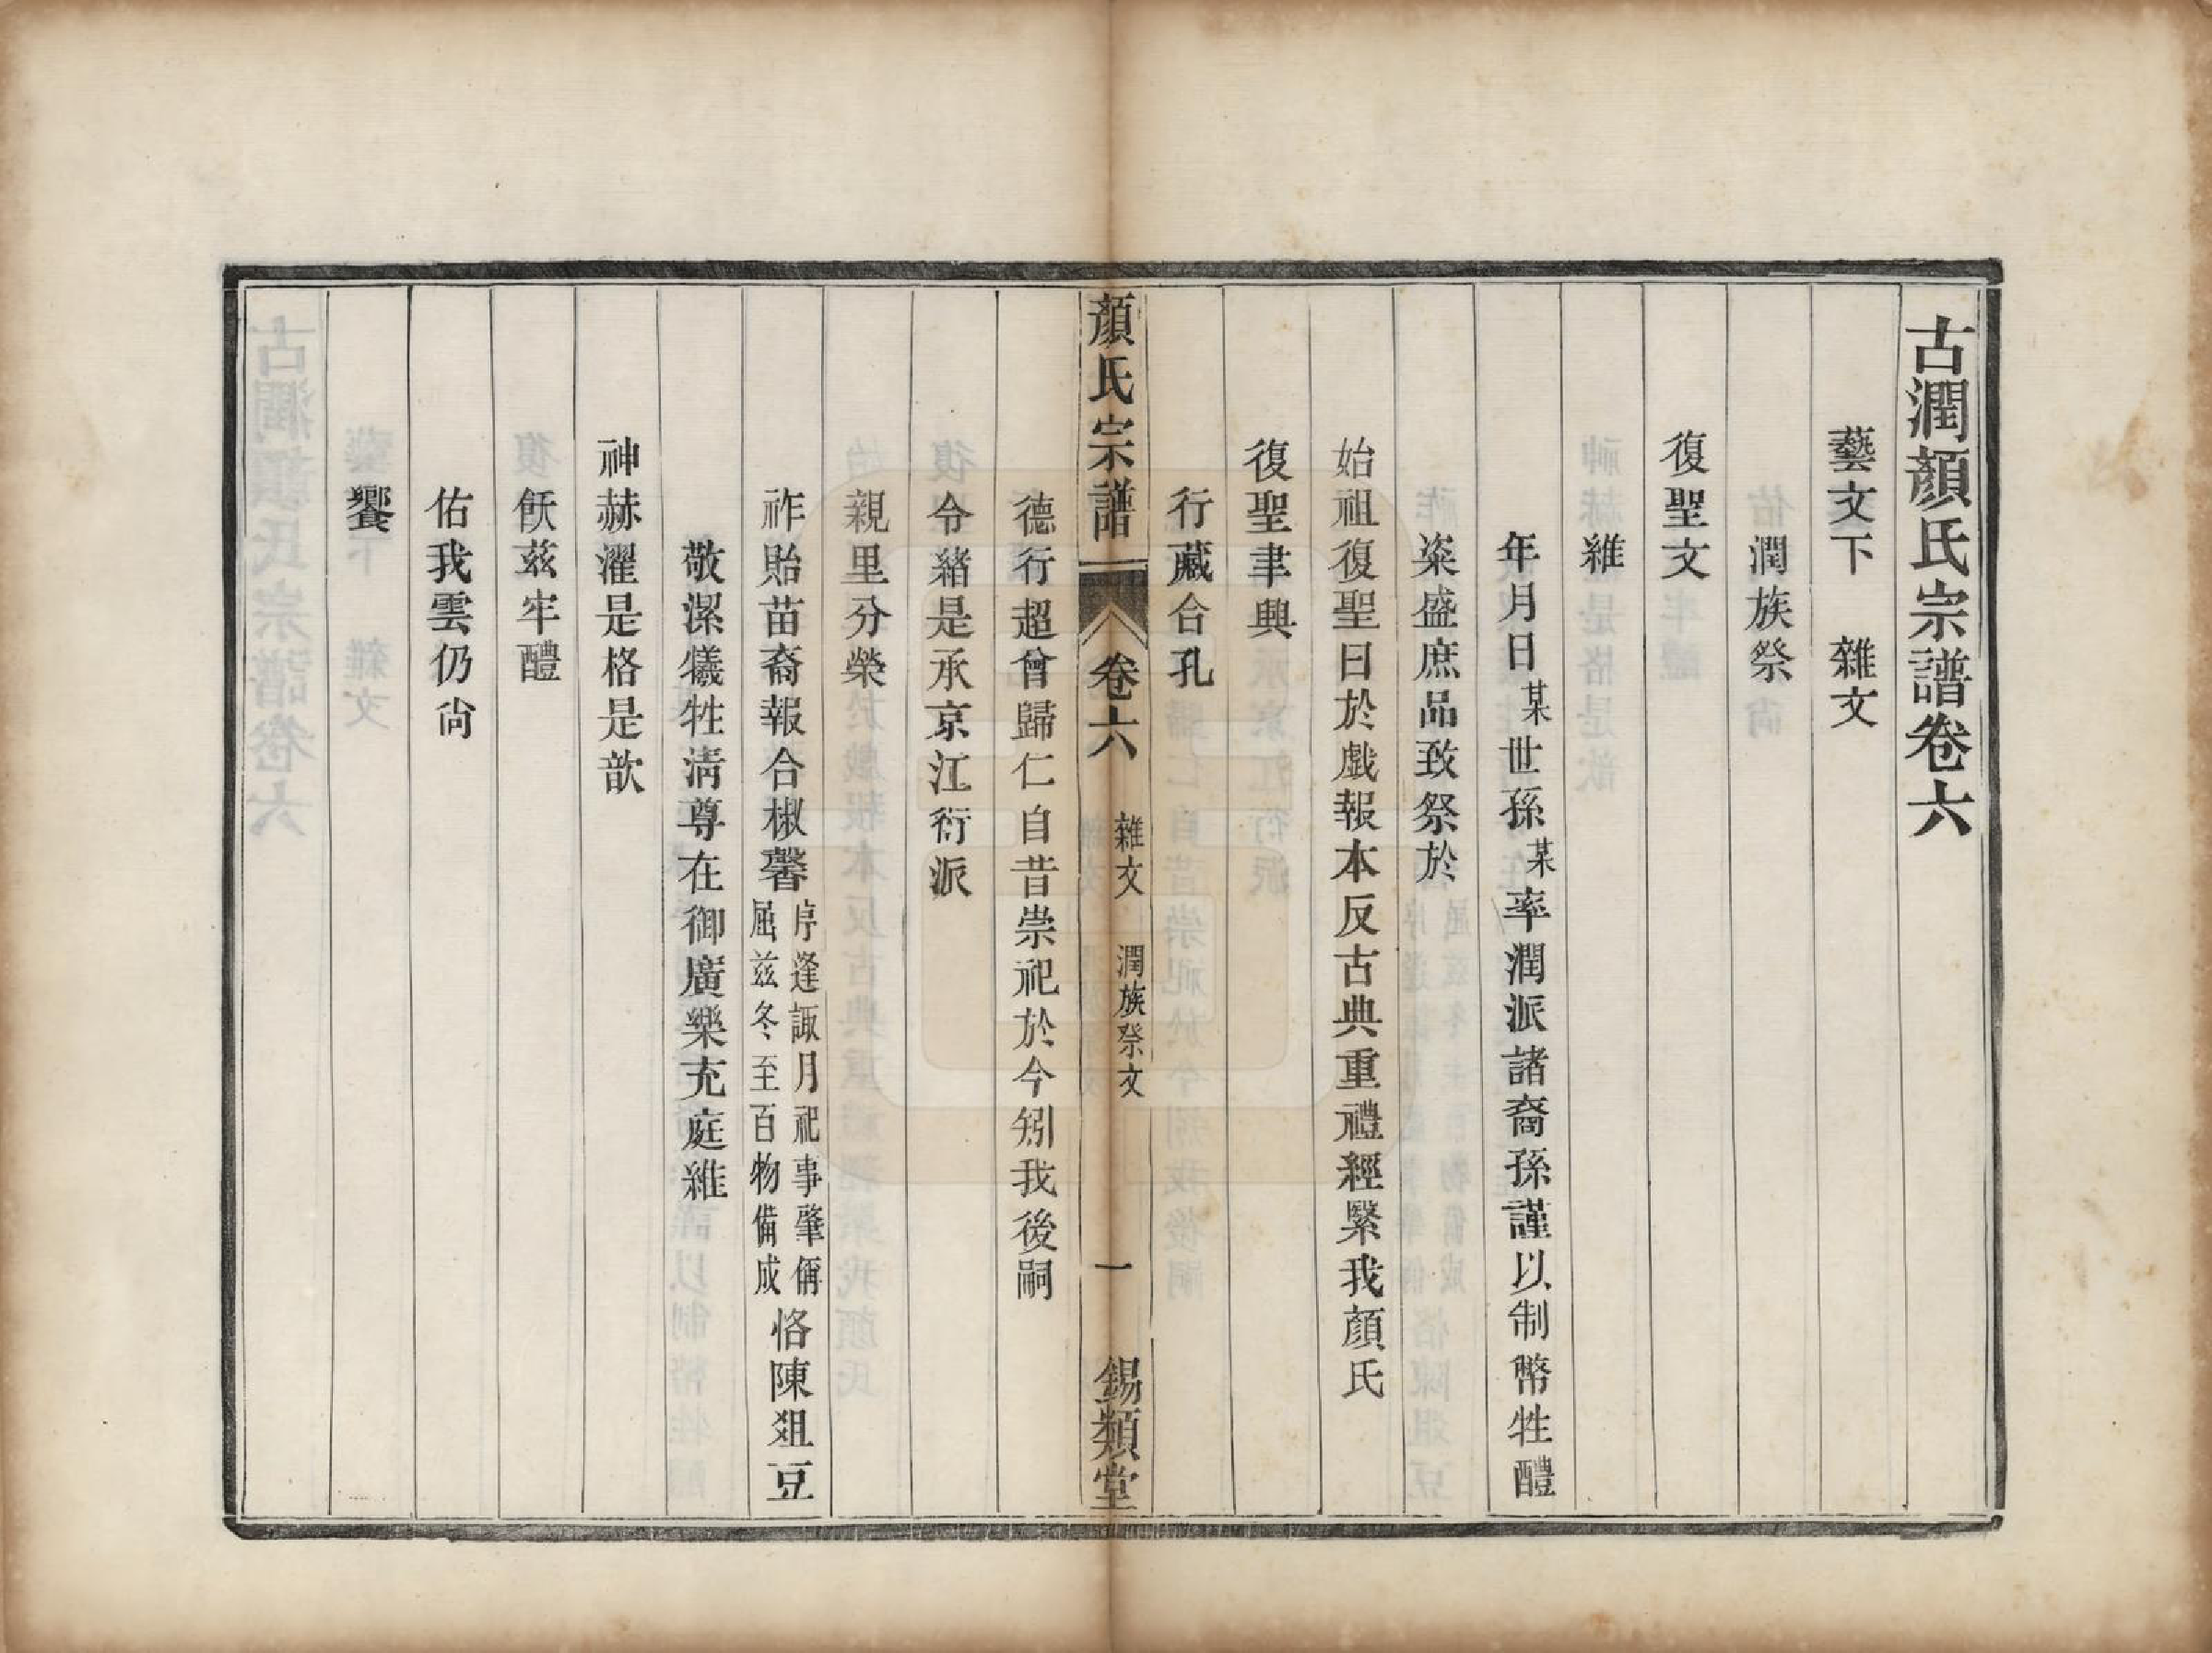 古潤顏氏宗譜卷六
藝文下　雜文
潤族祭
復聖文
維
年月日某世孫某率潤派諸裔孫謹以制幣牲醴
粢盛庶品致祭於
始祖復聖曰於戲報本反古典重禮經緊我顏氏
復聖聿興
行藏合孔
顏氏宗譜　卷六　雜文　潤族祭文　一　錫類堂
德行超曾歸仁自昔崇祀於今矧我後嗣
令緒是承京江衍派
親里分榮
祚貽苗裔報合椒馨序逢諏月祀事肇偁屆茲冬至百物備成恪陳俎豆
敬潔犧牲清尊在御廣樂充庭維
神赫濯是格是歆
飫茲牢醴
佑我雲仍尙
饗